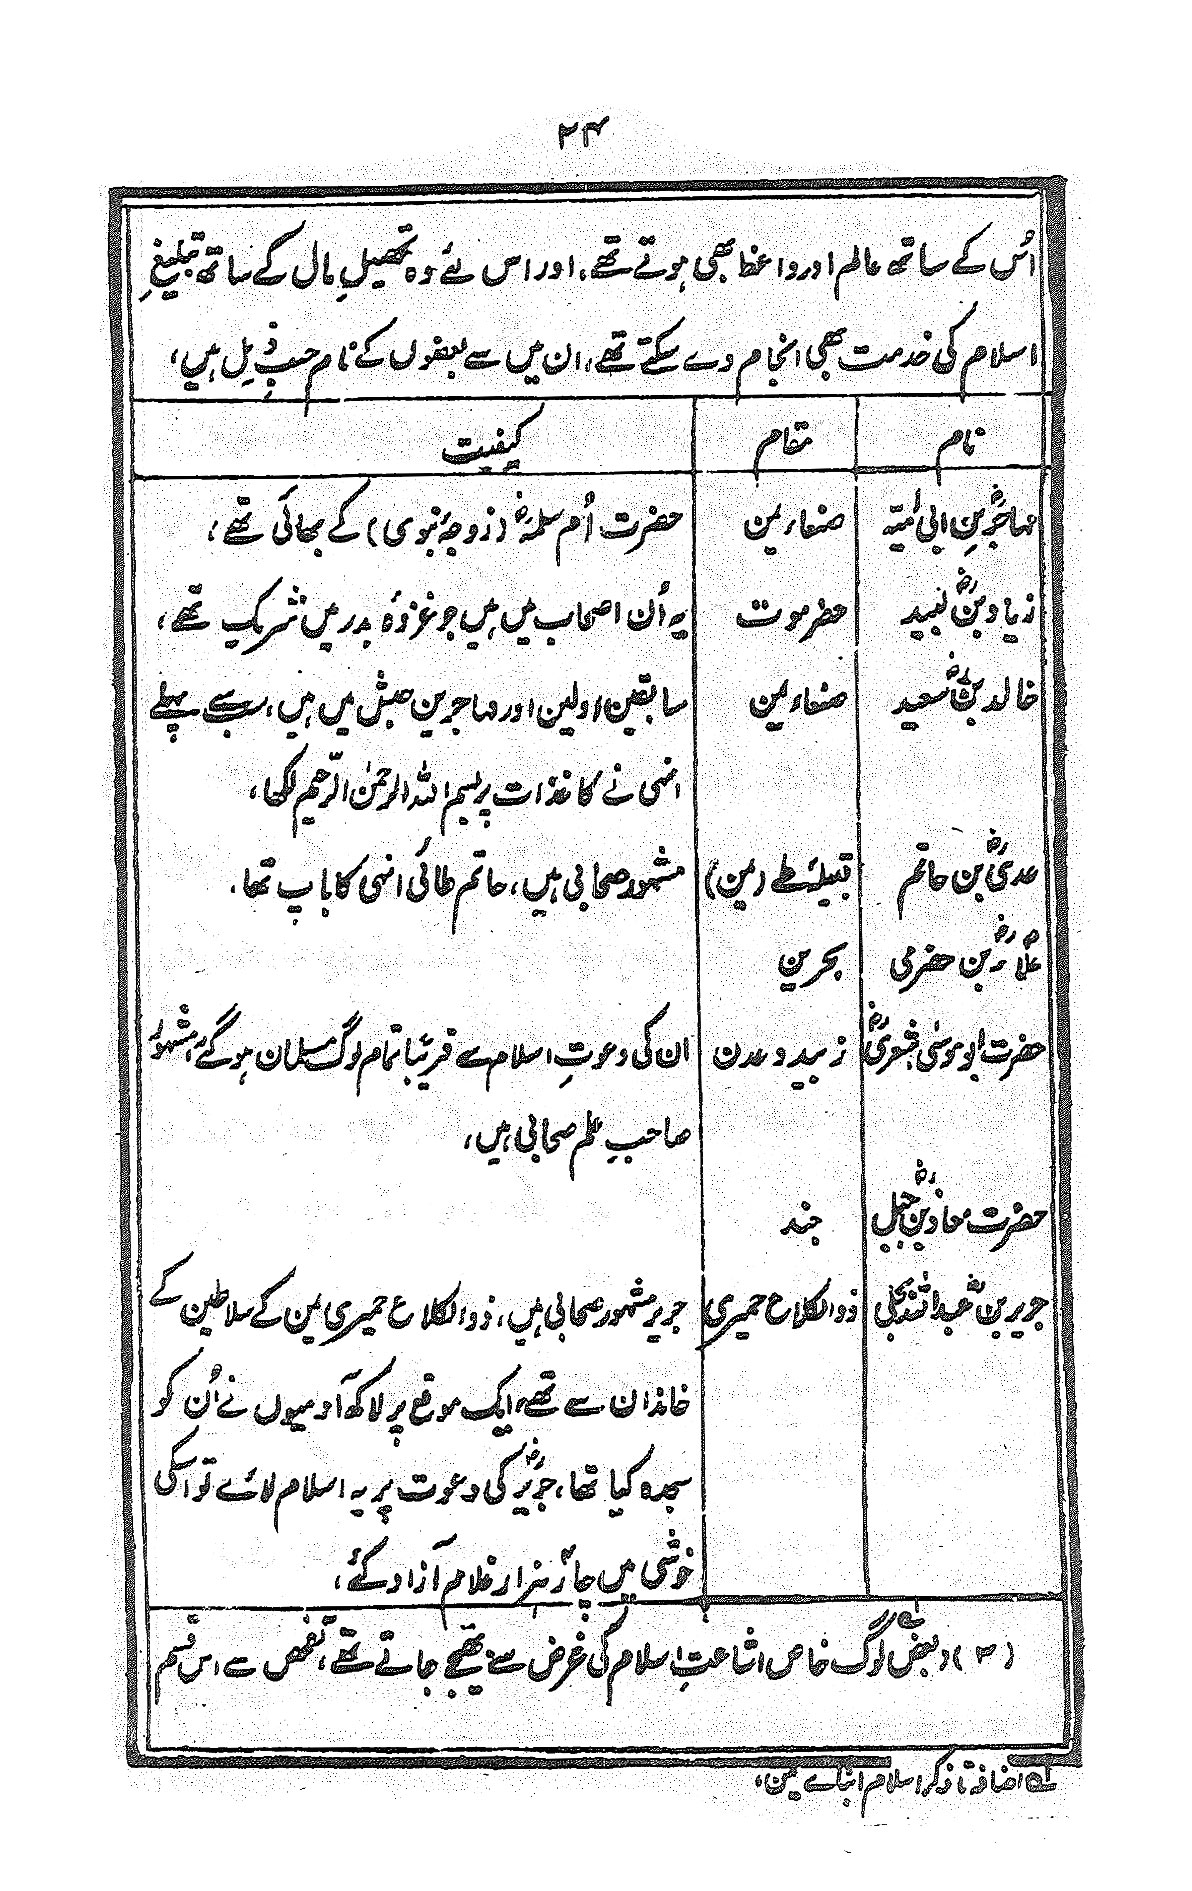 ۲۴
اُس کے ساتھ عالم اور واعظ بھی ہوتے تھے، اور اس لئے وہ تحصیلِ مال کے ساتھ تبلیغِ
اسلام کی خدمت بھی انجام دے سکتے تھے، ان میں سے بعضوں کے نام حسبِ ذیل ہیں،
نام مقام کیفیت
مہاجرؓ بن ابی اُمیّہ صنعاء یمن حضرت اُم سلمہؓ (زوجۂ نبوی) کے بھائی تھے،
زیاد بنؓ لبید حضرموت یہ اُن اصحاب میں ہیں جو غزوۂ بدر میں شریک تھے،
خالد بنؓ سعید صنعاء یمن سابقین اولین اور مہاجرین حبش میں ہیں، سب سے پہلے
انہی نے کاغذات پر بسم اللہ الرحمٰن الرّحیم لکھا،
عدیؓ بن حاتم قبیلۂ طے (یمن) مشہور صحابی ہیں، حاتم طائی انہی کا باپ تھا،
علاءؓ بن حضرمی بحرین
حضرت ابو موسٰی اشعریؓ زبید و عدن ان کی دعوتِ اسلام سے قریبًا تمام لوگ مسلمان ہو گئے، مشہور
صاحبِ علم صحابی ہیں،
حضرت معاذ بنؓ جبل جند
جریر بنؓ عبد اللہ بجلی ذوالکلاع حمیری جریر مشہور صحابی ہیں، ذوالکلاع حمیری یمن کے سلاطین کے
خاندان سے تھے، ایک موقع پر لاکھ آدمیوں نے اُن کو
سجدہ کیا تھا، جریرؓ کی دعوت پر یہ اسلام لائے تو اسکی
خوشی میں چار ہزار غلام آزاد کئے،
(۳) بعض لوگ خاص اشاعتِ اسلام کی غرض سے بھیجے جاتے تھے، تفحص سے اس قسم
لہ اضافہ تا ذکر اسلام ابنائے یمن،